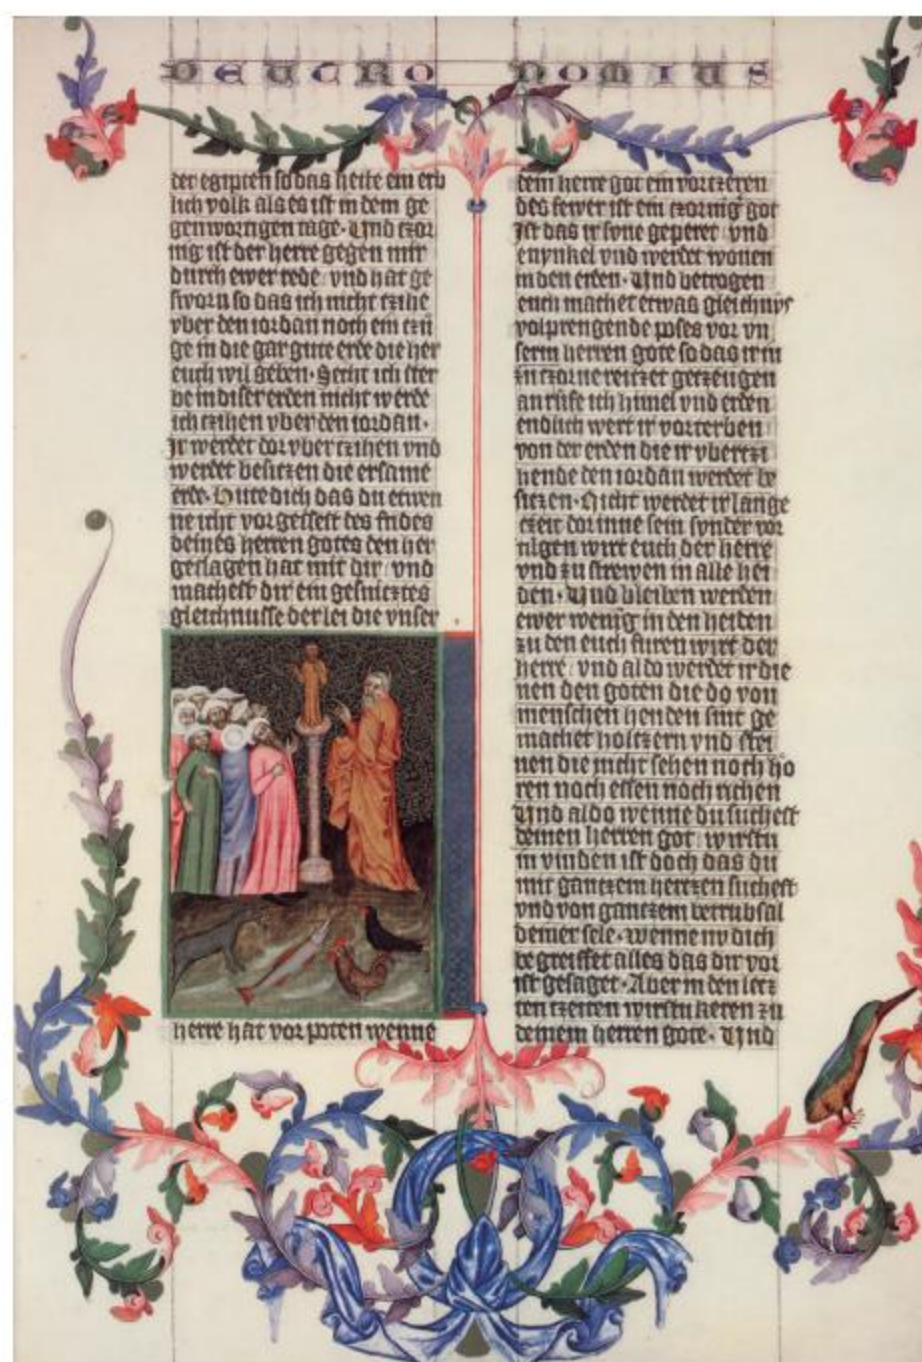 DEUCRO NOMIUS
der egipten so das heite ein erb
lich volk als es ist in dem ge
genwortigen tage· Und czor
nig ist der herre gegen mir
durch ewer rede vnd hat ge
sworn so das ich nicht czihe
vber den iordan noch ein czu
ge in die gar gute erde die her
euch wil geben· Secht ich ster
be in diser erden nicht werde
ich czihen vber den iordan·
Ir werdet dor vber czihen vnd
werdet besitzen die ersame
erde· Hute dich das du etwen
ne icht vorgessest des frides
deines herren gotes den her
geslagen hat mit dir vnd
machest dir ein gesnicztes
gleichnusse der lei die vnser
herre hat vorpoten wenne
dem herre got ein vorczeren
des fewer ist ein czornig got
Ist das ir sone geperet vnd
enynkel vnd werdet wonen
in den erden· Und betrogen
euch machet etwas gleichnus
volprengende poses vor vn
serm herren gote so das ir in
zu czorne reiczet geczeugen
an rufe ich himel vnd erden
endlich wert ir vorterben
von der erden die ir vberczi
hende den iordan werdet be
siczen· Nicht werdet ir lange
czeit dor inne sein synder vor
tilgen wirt euch der herre
vnd zu strewen in alle hei
den· Und bleiben werden
ewer wenig in den heiden
zu den euch furen wirt der
herre vnd aldo werdet ir die
nen den goten die do von
menschen henden sint ge
machet holczern vnd stei
nen die nicht sehen noch ho
ren noch essen noch richen
Und aldo wenne du suchest
deinen herren got wirstu
in vinden ist doch das du
mit ganczem herczen suchest
vnd von ganczem betrubsal
deiner sele· wenne nv dich
begreiffet alles das dir vor
ist gesaget· Aber in den lecz
ten czeiten wirstu keren zu
deinem herren gote· Und